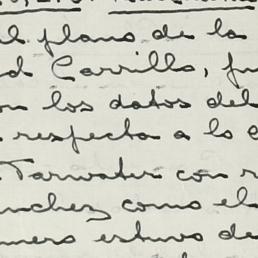 el plano de la
d Carrillo, fu
on los datos del
respecta a lo e
Tarwater con r
nchez como el
mero estuvo de